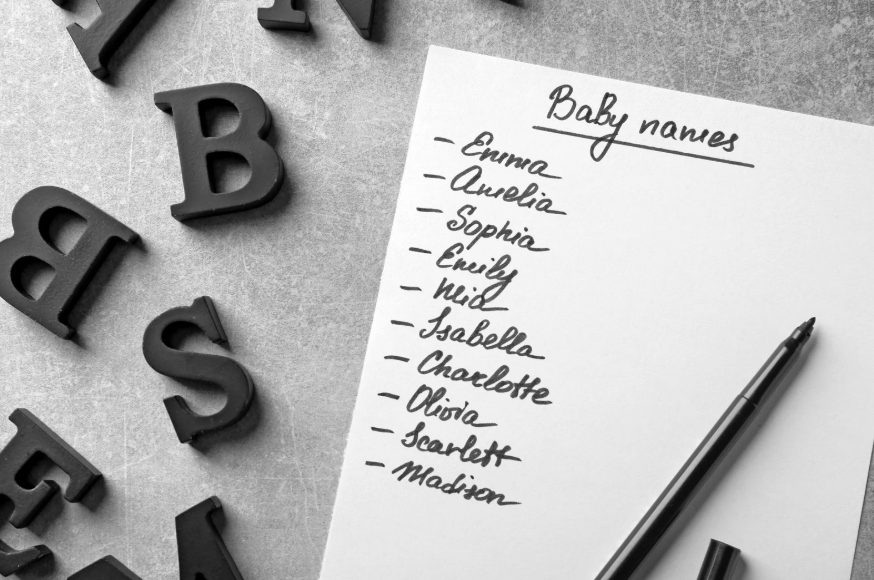 Baby names
- Emma
- Amelia
- Sophia
- Emily
- Mia
- Isabella
- Charlotte
- Olivia
- Scarlett
- Madison
B
B
S
E